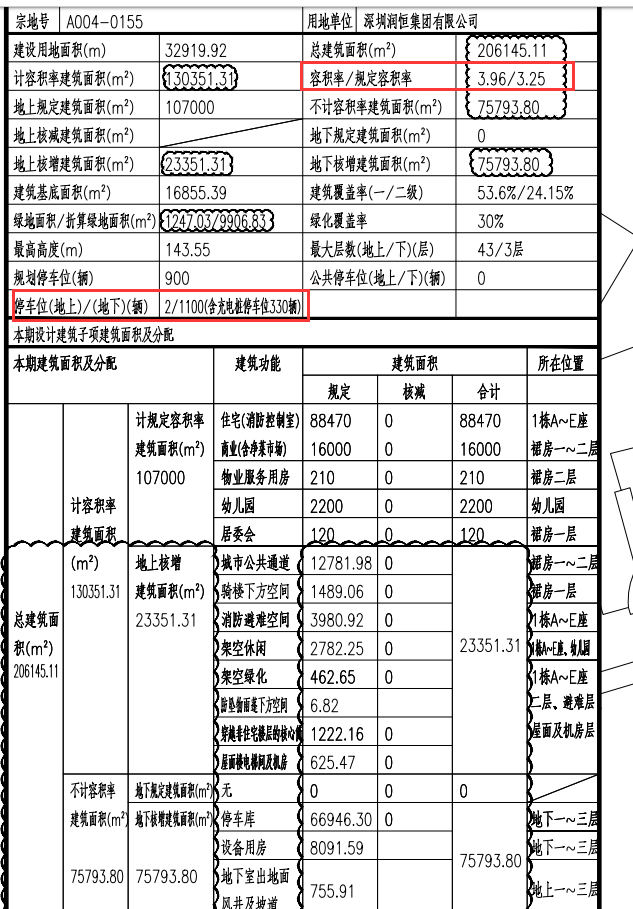 宗地号 A004-0155 用地单位 深圳润恒集团有限公司
建设用地面积(m) 32919.92 总建筑面积(m²) 206145.11
计容积率建筑面积(m²) 130351.31 容积率/规定容积率 3.96/3.25
地上规定建筑面积(m²) 107000 不计容积率建筑面积(m²) 75793.80
地上核减建筑面积(m²) 地下规定建筑面积(m²) 0
地上核增建筑面积(m²) 23351.31 地下核增建筑面积(m²) 75793.80
建筑基底面积(m²) 16855.39 建筑覆盖率(一/二级) 53.6%/24.15%
绿地面积/折算绿地面积(m²) 1247.03/9906.83 绿化覆盖率 30%
最高高度(m) 143.55 最大层数(地上/下)(层) 43/3层
规划停车位(辆) 900 公共停车位(地上/下)(辆) 0
停车位(地上)/(地下)(辆) 2/1100(含充电桩停车位330辆)
本期设计建筑子项建筑面积及分配
本期建筑面积及分配 建筑功能 建筑面积 所在位置
规定 核减 合计
计规定容积率 住宅(消防控制室) 88470 0 88470 1栋A~E座
建筑面积(m²) 商业(含净菜市场) 16000 0 16000 裙房一~二层
107000 物业服务用房 210 0 210 裙房二层
计容积率 幼儿园 2200 0 2200 幼儿园
建筑面积 居委会 120 0 120 裙房一层
(m²) 地上核增 城市公共通道 12781.98 0 裙房一~二层
130351.31 建筑面积(m²) 骑楼下方空间 1489.06 0 裙房一层
总建筑面 23351.31 消防避难空间 3980.92 0 1栋A~E座
积(m²) 架空休闲 2782.25 0 23351.31 1栋A~E座、幼儿园
206145.11 架空绿化 462.65 0 1栋A~E座
防坠物雨蓬下方空间 6.82 二层、避难层
穿越非住宅楼层的核心筒 1222.16 0 屋面及机房层
屋面楼电梯间及机房 625.47 0
不计容积率 地下规定建筑面积(m²) 无 0 0 0
建筑面积(m²) 地下核增建筑面积(m²) 停车库 66946.30 0 地下一~三层
设备用房 8091.59 75793.80 地下一~三层
75793.80 75793.80 地下室出地面 755.91 地上一~三层
风井及坡道